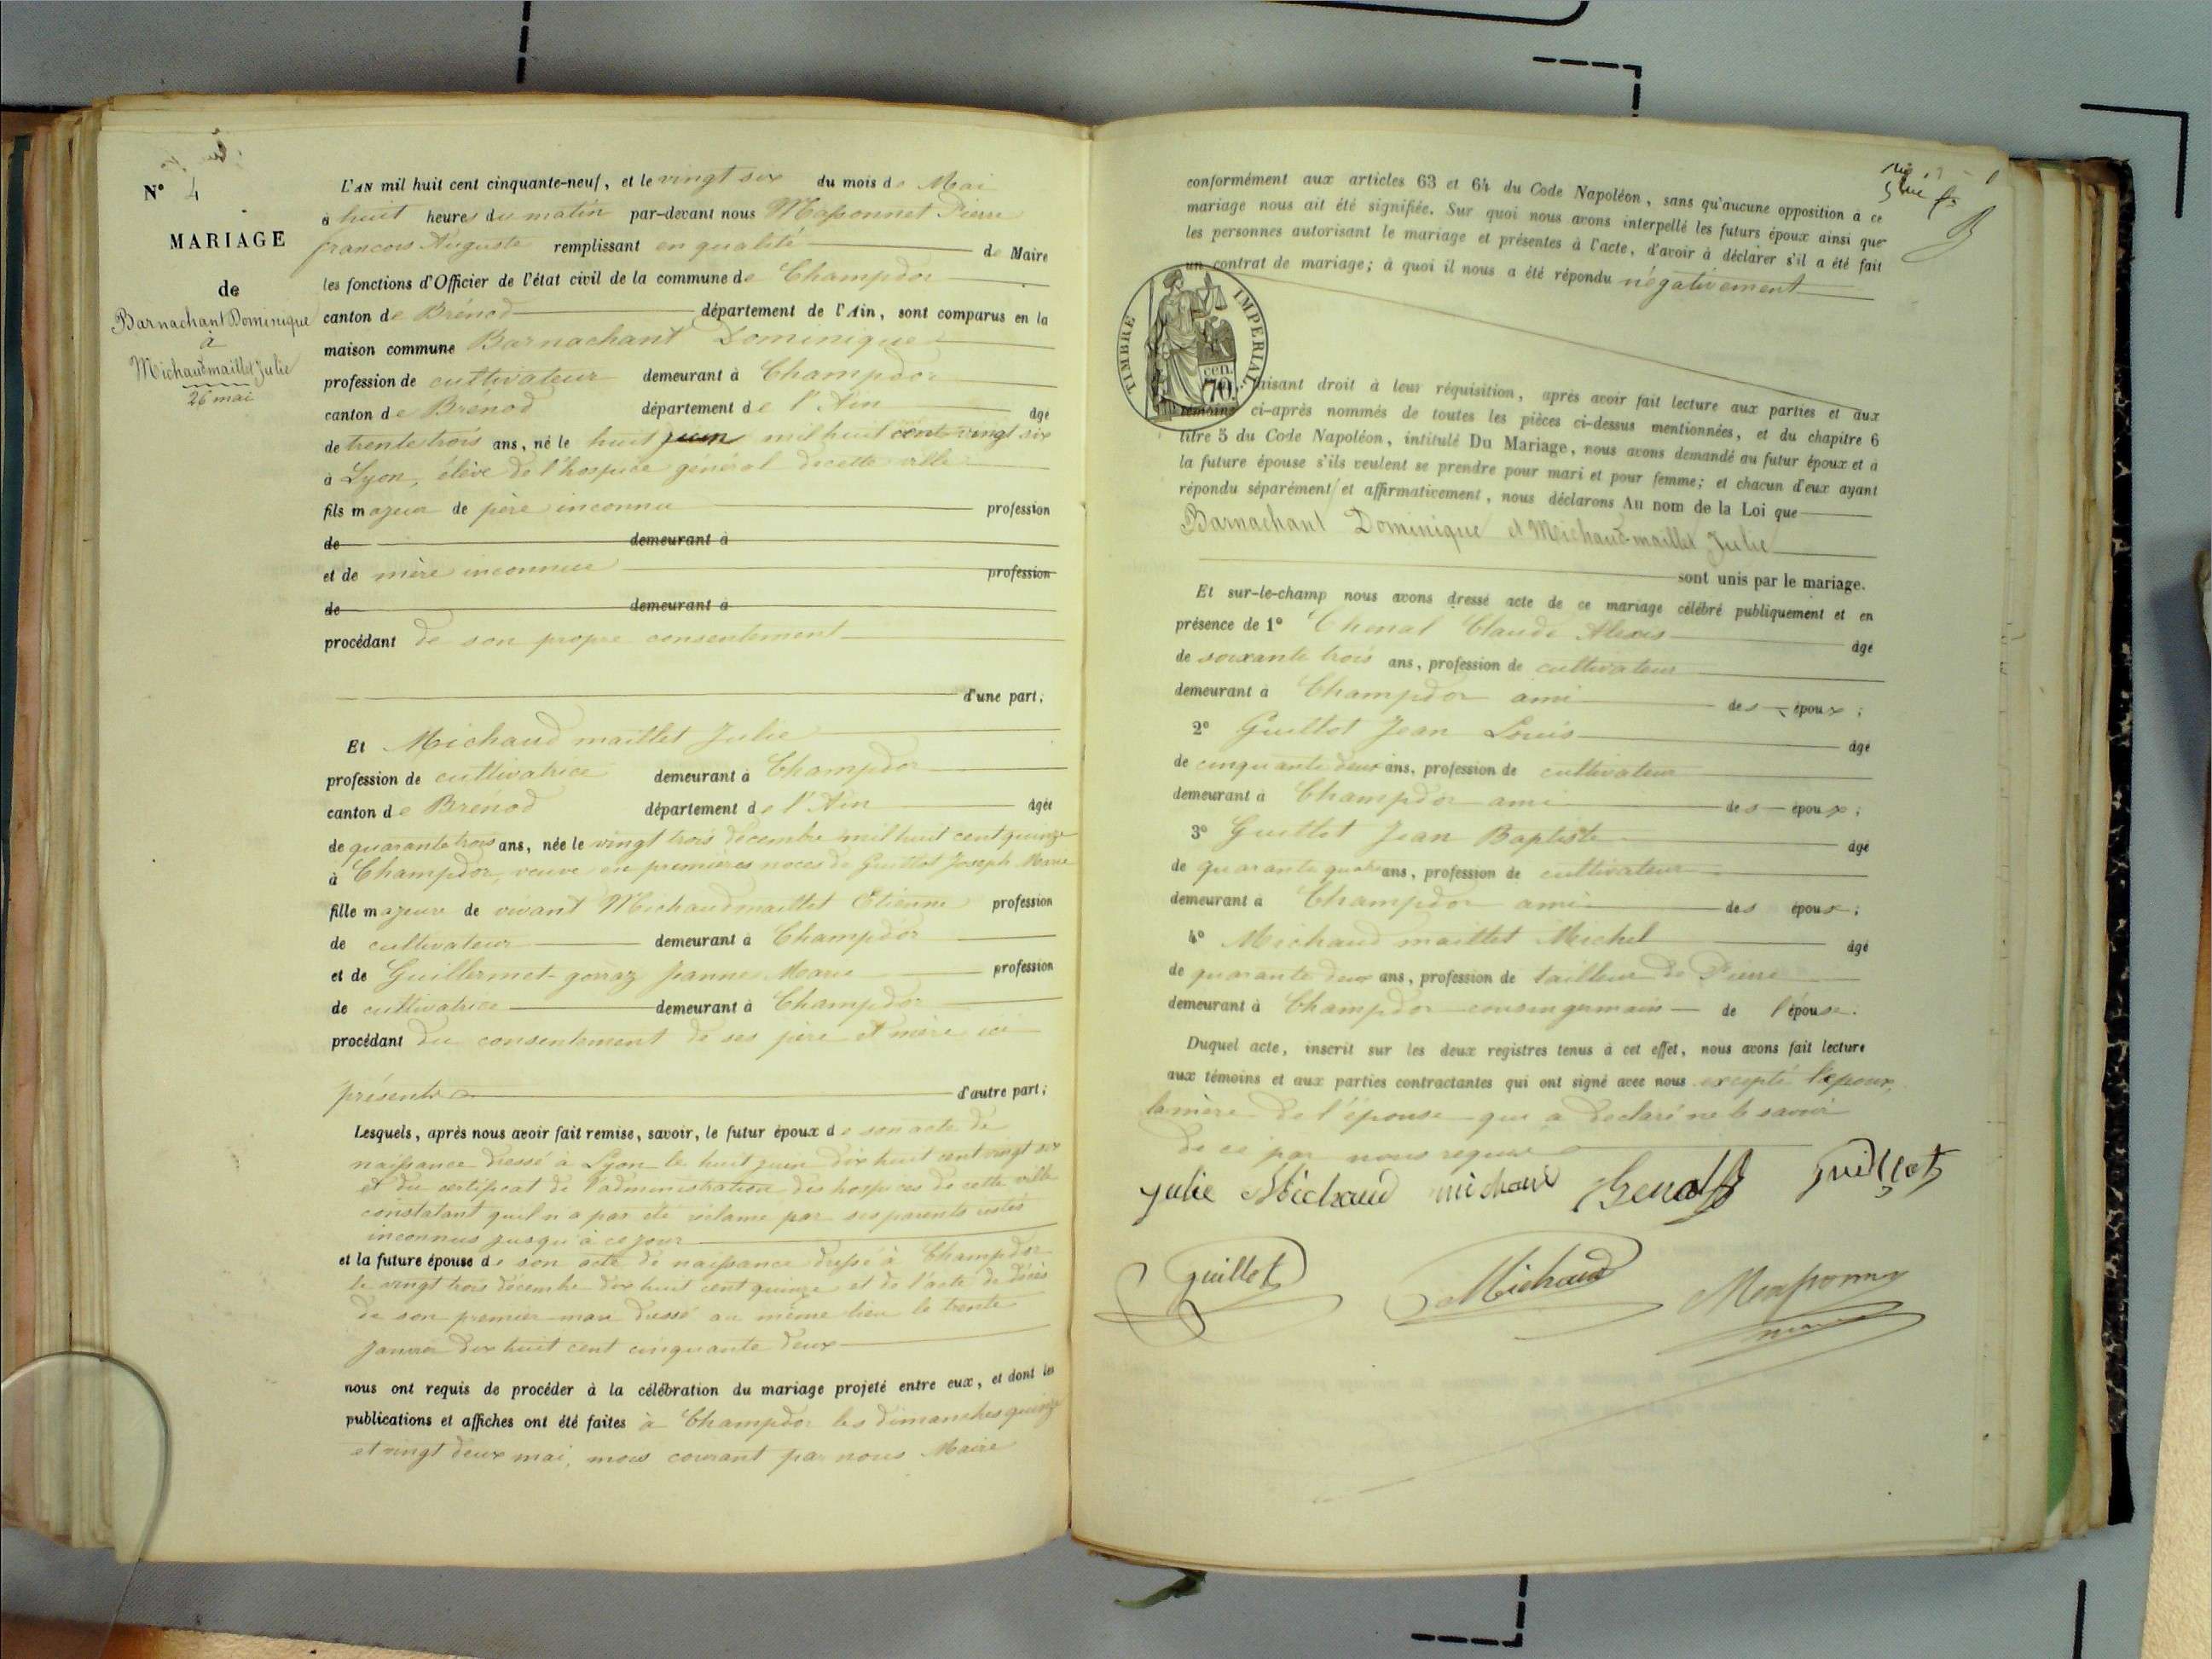 N° 4
MARIAGE
de
Barnachant Dominique
à
Michaudmaillet Julie
26 mai
L'AN mil huit cent cinquante-neuf, et le vingt six du mois de Mai
à huit heures du matin par-devant nous Massonnet Pierre
francois Auguste remplissant en qualité de Maire
les fonctions d'Officier de l'état civil de la commune de Champdor
canton de Brénod département de l'Ain, sont comparus en la
maison commune Barnachant Dominique
profession de cultivateur demeurant à Champdor
canton de Brénod département de l'Ain âgé
de trente trois ans, né le huit juin mil huit cent vingt six
à Lyon, élève de l'hospice général de cette ville
fils majeur de père inconnu profession
de demeurant à
et de mère inconnue profession
de demeurant à
procédant de son propre consentement
d'une part;
Et Michaud maillet Julie
profession de cultivatrice demeurant à Champdor
canton de Brénod département de l'Ain âgée
de quarante trois ans, née le vingt trois décembre mil huit cent quinze
à Champdor, veuve en premières noces de Guillot Joseph Marie
fille majeure de vivant Michaudmaillet Etienne profession
de cultivateur demeurant à Champdor
et de Guillermet-gorraz Jeanne Marie profession
de cultivatrice demeurant à Champdor
procédant du consentement de ses père et mère ici
présents d'autre part;
Lesquels, après nous avoir fait remise, savoir, le futur époux de son acte de
naissance dressé à Lyon le huit juin dix huit cent vingt six
et du certificat de l'administration des hospices de cette ville
constatant qu'il n'a pas été réclamé par ses parents restés
inconnus jusqu'à ce jour
et la future épouse de son acte de naissance dressé à Champdor
le vingt trois décembre dix huit cent quinze et de l'acte de décès
de son premier mari dressé au même lieu le trente
Janvier dix huit cent cinquante deux
nous ont requis de procéder à la célébration du mariage projeté entre eux, et dont les
publications et affiches ont été faites à Champdor les dimanches quinze
et vingt deux mai, mois courant par nous Maire
conformément aux articles 63 et 64 du Code Napoléon, sans qu'aucune opposition à ce
mariage nous ait été signifiée. Sur quoi nous avons interpellé les futurs époux ainsi que
les personnes autorisant le mariage et présentes à l'acte, d'avoir à déclarer s'il a été fait
un contrat de mariage; à quoi il nous a été répondu négativement
TIMBRE IMPERIAL
70 cen.
aisant droit à leur réquisition, après avoir fait lecture aux parties et aux
témoins ci-après nommés de toutes les pièces ci-dessus mentionnées, et du chapitre 6
titre 5 du Code Napoléon, intitulé Du Mariage, nous avons demandé au futur époux et à
la future épouse s'ils veulent se prendre pour mari et pour femme; et chacun d'eux ayant
répondu séparément et affirmativement, nous déclarons Au nom de la Loi que
Barnachant Dominique et Michaud-maillet Julie
sont unis par le mariage.
Et sur-le-champ nous avons dressé acte de ce mariage célébré publiquement et en
présence de 1° Chenal Claude Alexis âgé
de soixante trois ans, profession de cultivateur
demeurant à Champdor ami des époux;
2° Guillot Jean Louis âgé
de cinquante deux ans, profession de cultivateur
demeurant à Champdor ami des époux;
3° Guillot Jean Baptiste âgé
de quarante quatre ans, profession de cultivateur
demeurant à Champdor ami des époux;
4° Michaud maillet Michel âgé
de quarante deux ans, profession de tailleur de Pierre
demeurant à Champdor cousin germain de l'épouse.
Duquel acte, inscrit sur les deux registres tenus à cet effet, nous avons fait lecture
aux témoins et aux parties contractantes qui ont signé avec nous excepté l'époux,
la mère de l'épouse qui a declaré ne le savoir
de ce par nous requis
julie Michaud michaud Chenal guillot
guillot Michaud Massonnet
maire